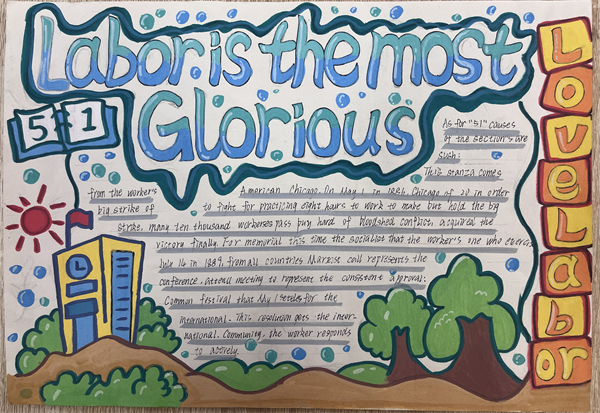 Labor is the most
Glorious
5 1
As for "51" causes
of the section's are
such:
This stanza comes
from the worker's American Chicago. On May 1 in 1886, Chicago of in order
big strike of to fight for practicing eight hairs to work to make but hold the big
strike, many ten thousand workerses pass buy hard of bloodshed conflict, acquired the
victory finally. For memorial this time the socialist that the worker's one
July 14 in 1889, from all countries Marxist call represents the
conference, attenu meeting to represent the consistent approval:
Common festival that My 1 steles for the
international. This resolution gets the inter-
national. Community, the worker responds
to actively.
Love Labor